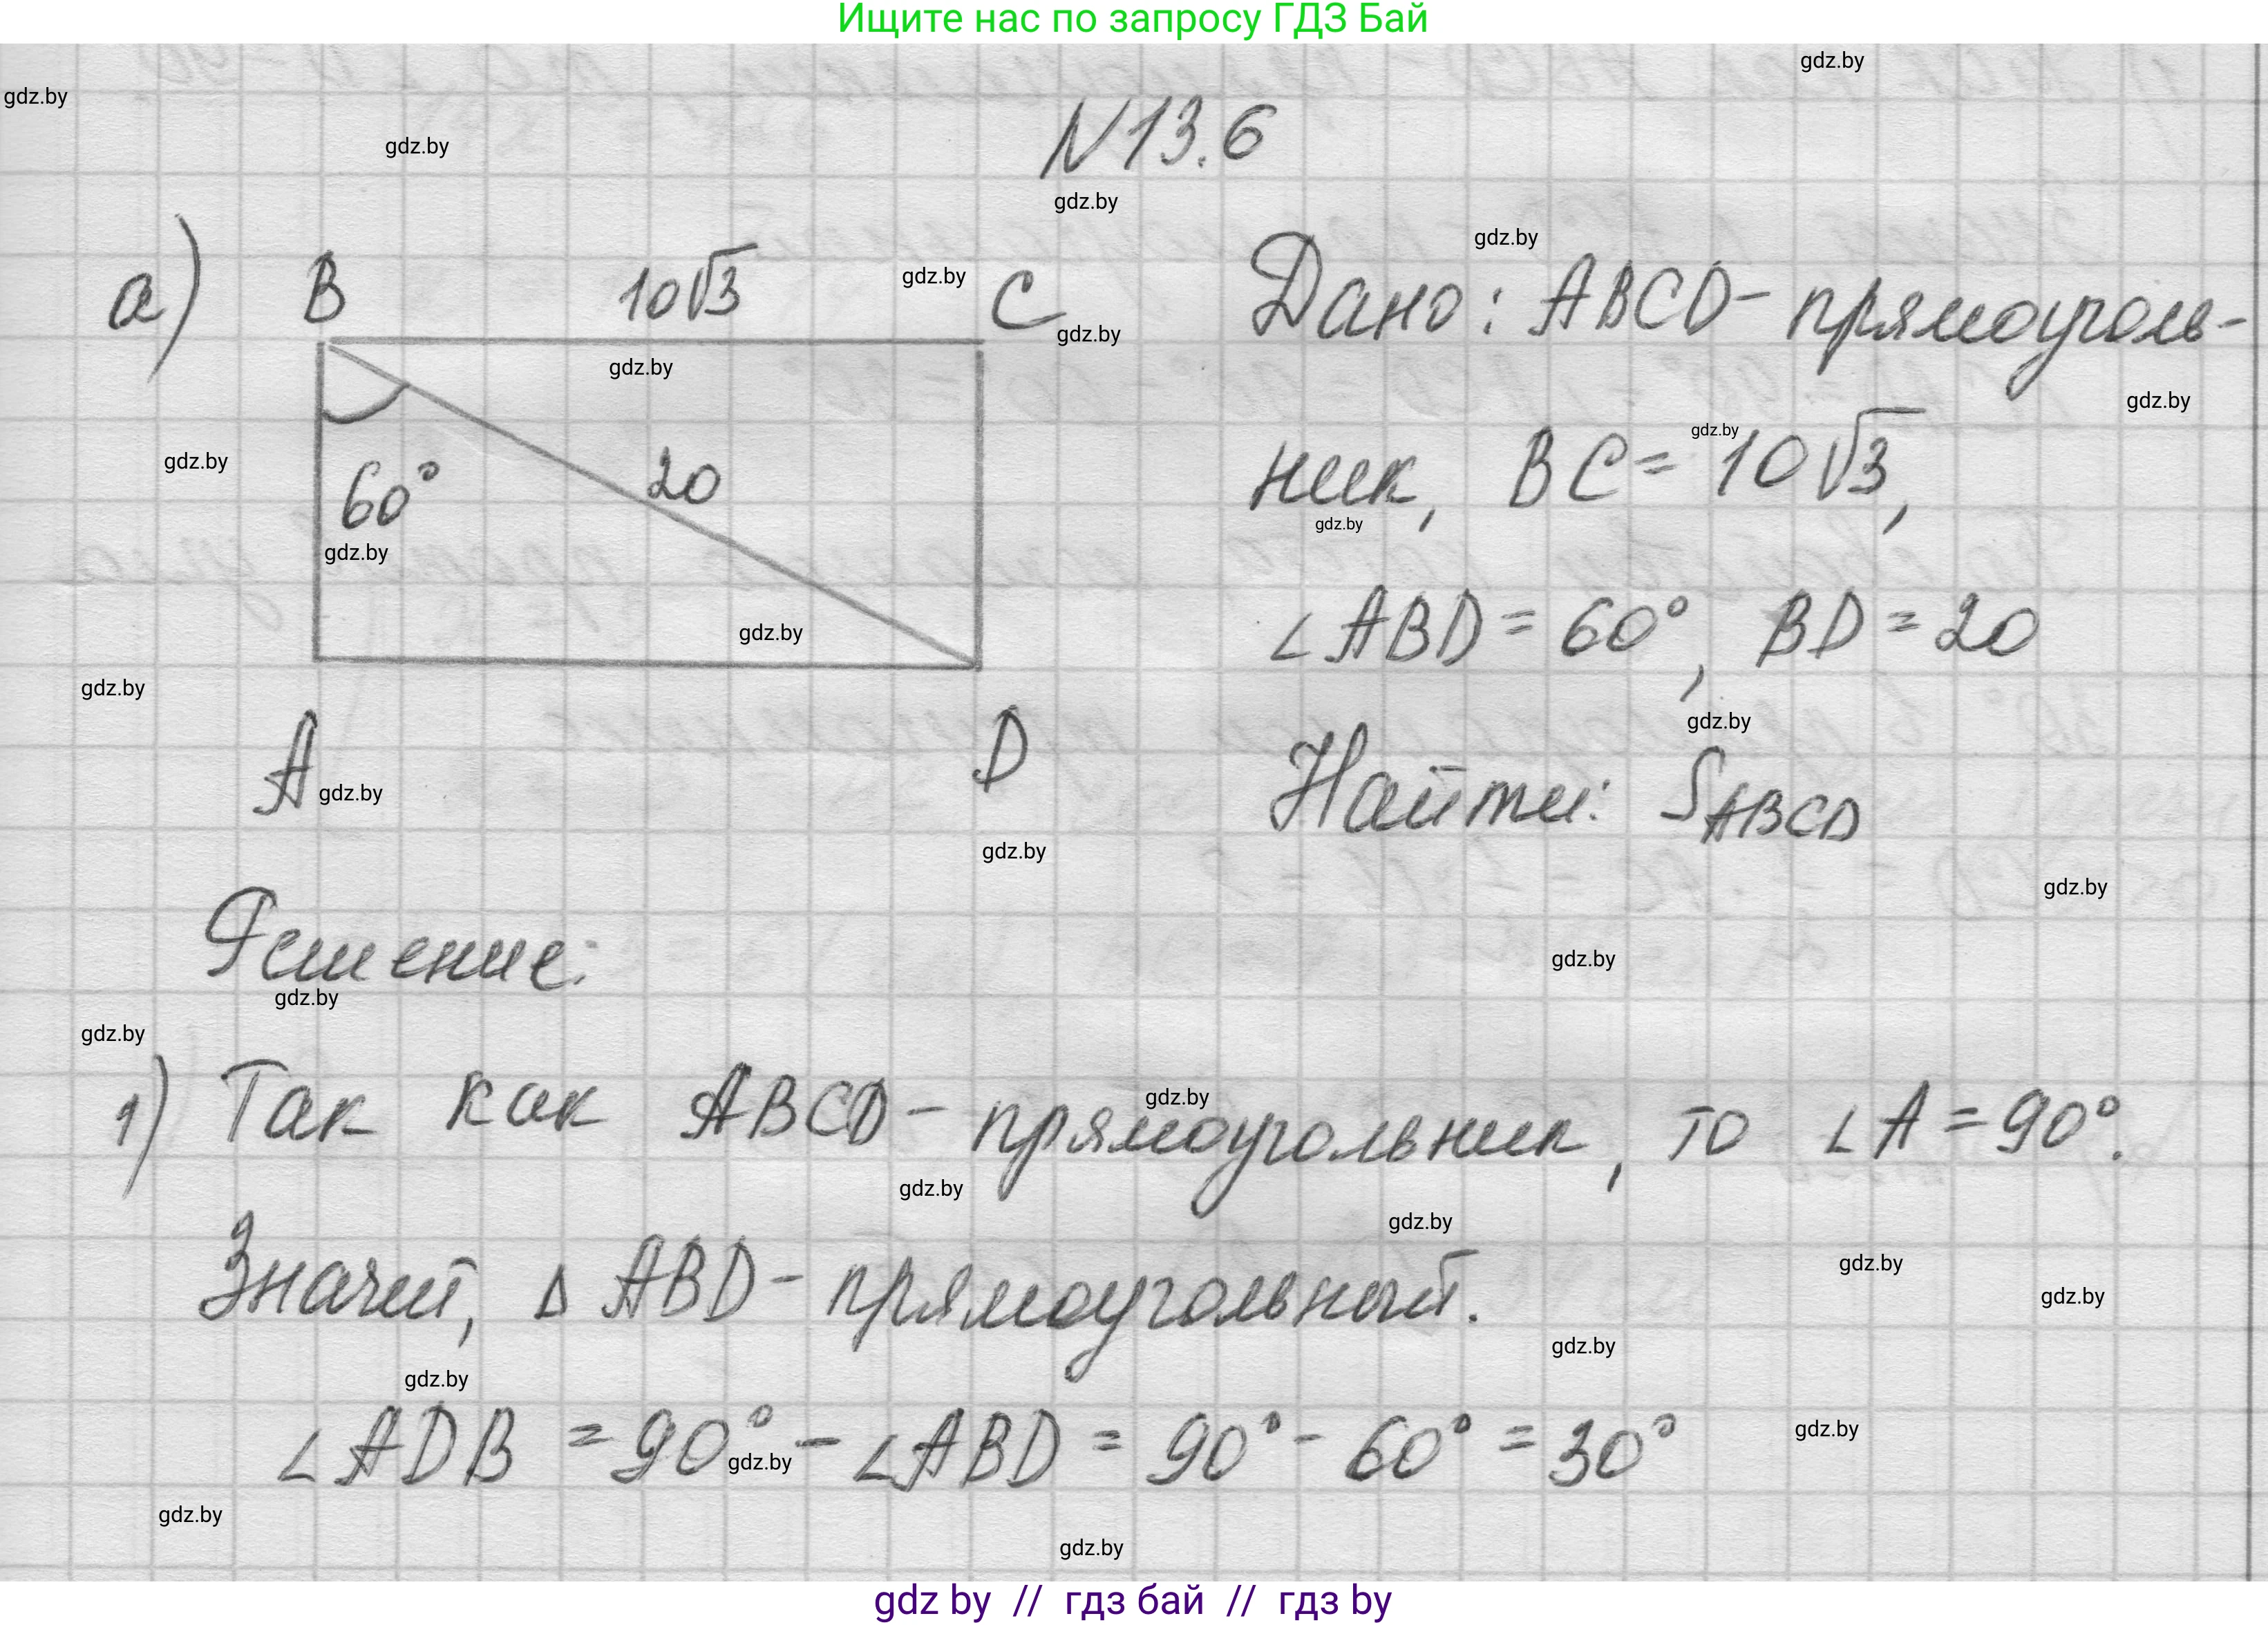 Ищите нас по запросу ГДЗ Бай
gdz.by
gdz.by
gdz.by
N13.6
gdz.by
gdz.by
а) B 10√3 C
gdz.by
gdz.by
gdz.by
Дано: ABCD- прямоуголь-
gdz.by
gdz.by
60° 20
gdz.by
gdz.by
ник, BC = 10√3,
gdz.by
gdz.by
∠ABD = 60°, BD = 20
gdz.by
gdz.by
A D
gdz.by
gdz.by
Найти: S ABCD
gdz.by
Решение:
gdz.by
gdz.by
gdz.by
1) Так как ABCD- прямоугольник, то ∠A = 90°.
gdz.by
gdz.by
gdz.by
Значит, Δ ABD- прямоугольный.
gdz.by
gdz.by
gdz.by
gdz.by
∠ADB = 90° - ∠ABD = 90° - 60° = 30°
gdz.by
gdz.by
gdz.by
gdz.by
gdz by // гдз бай // гдз by